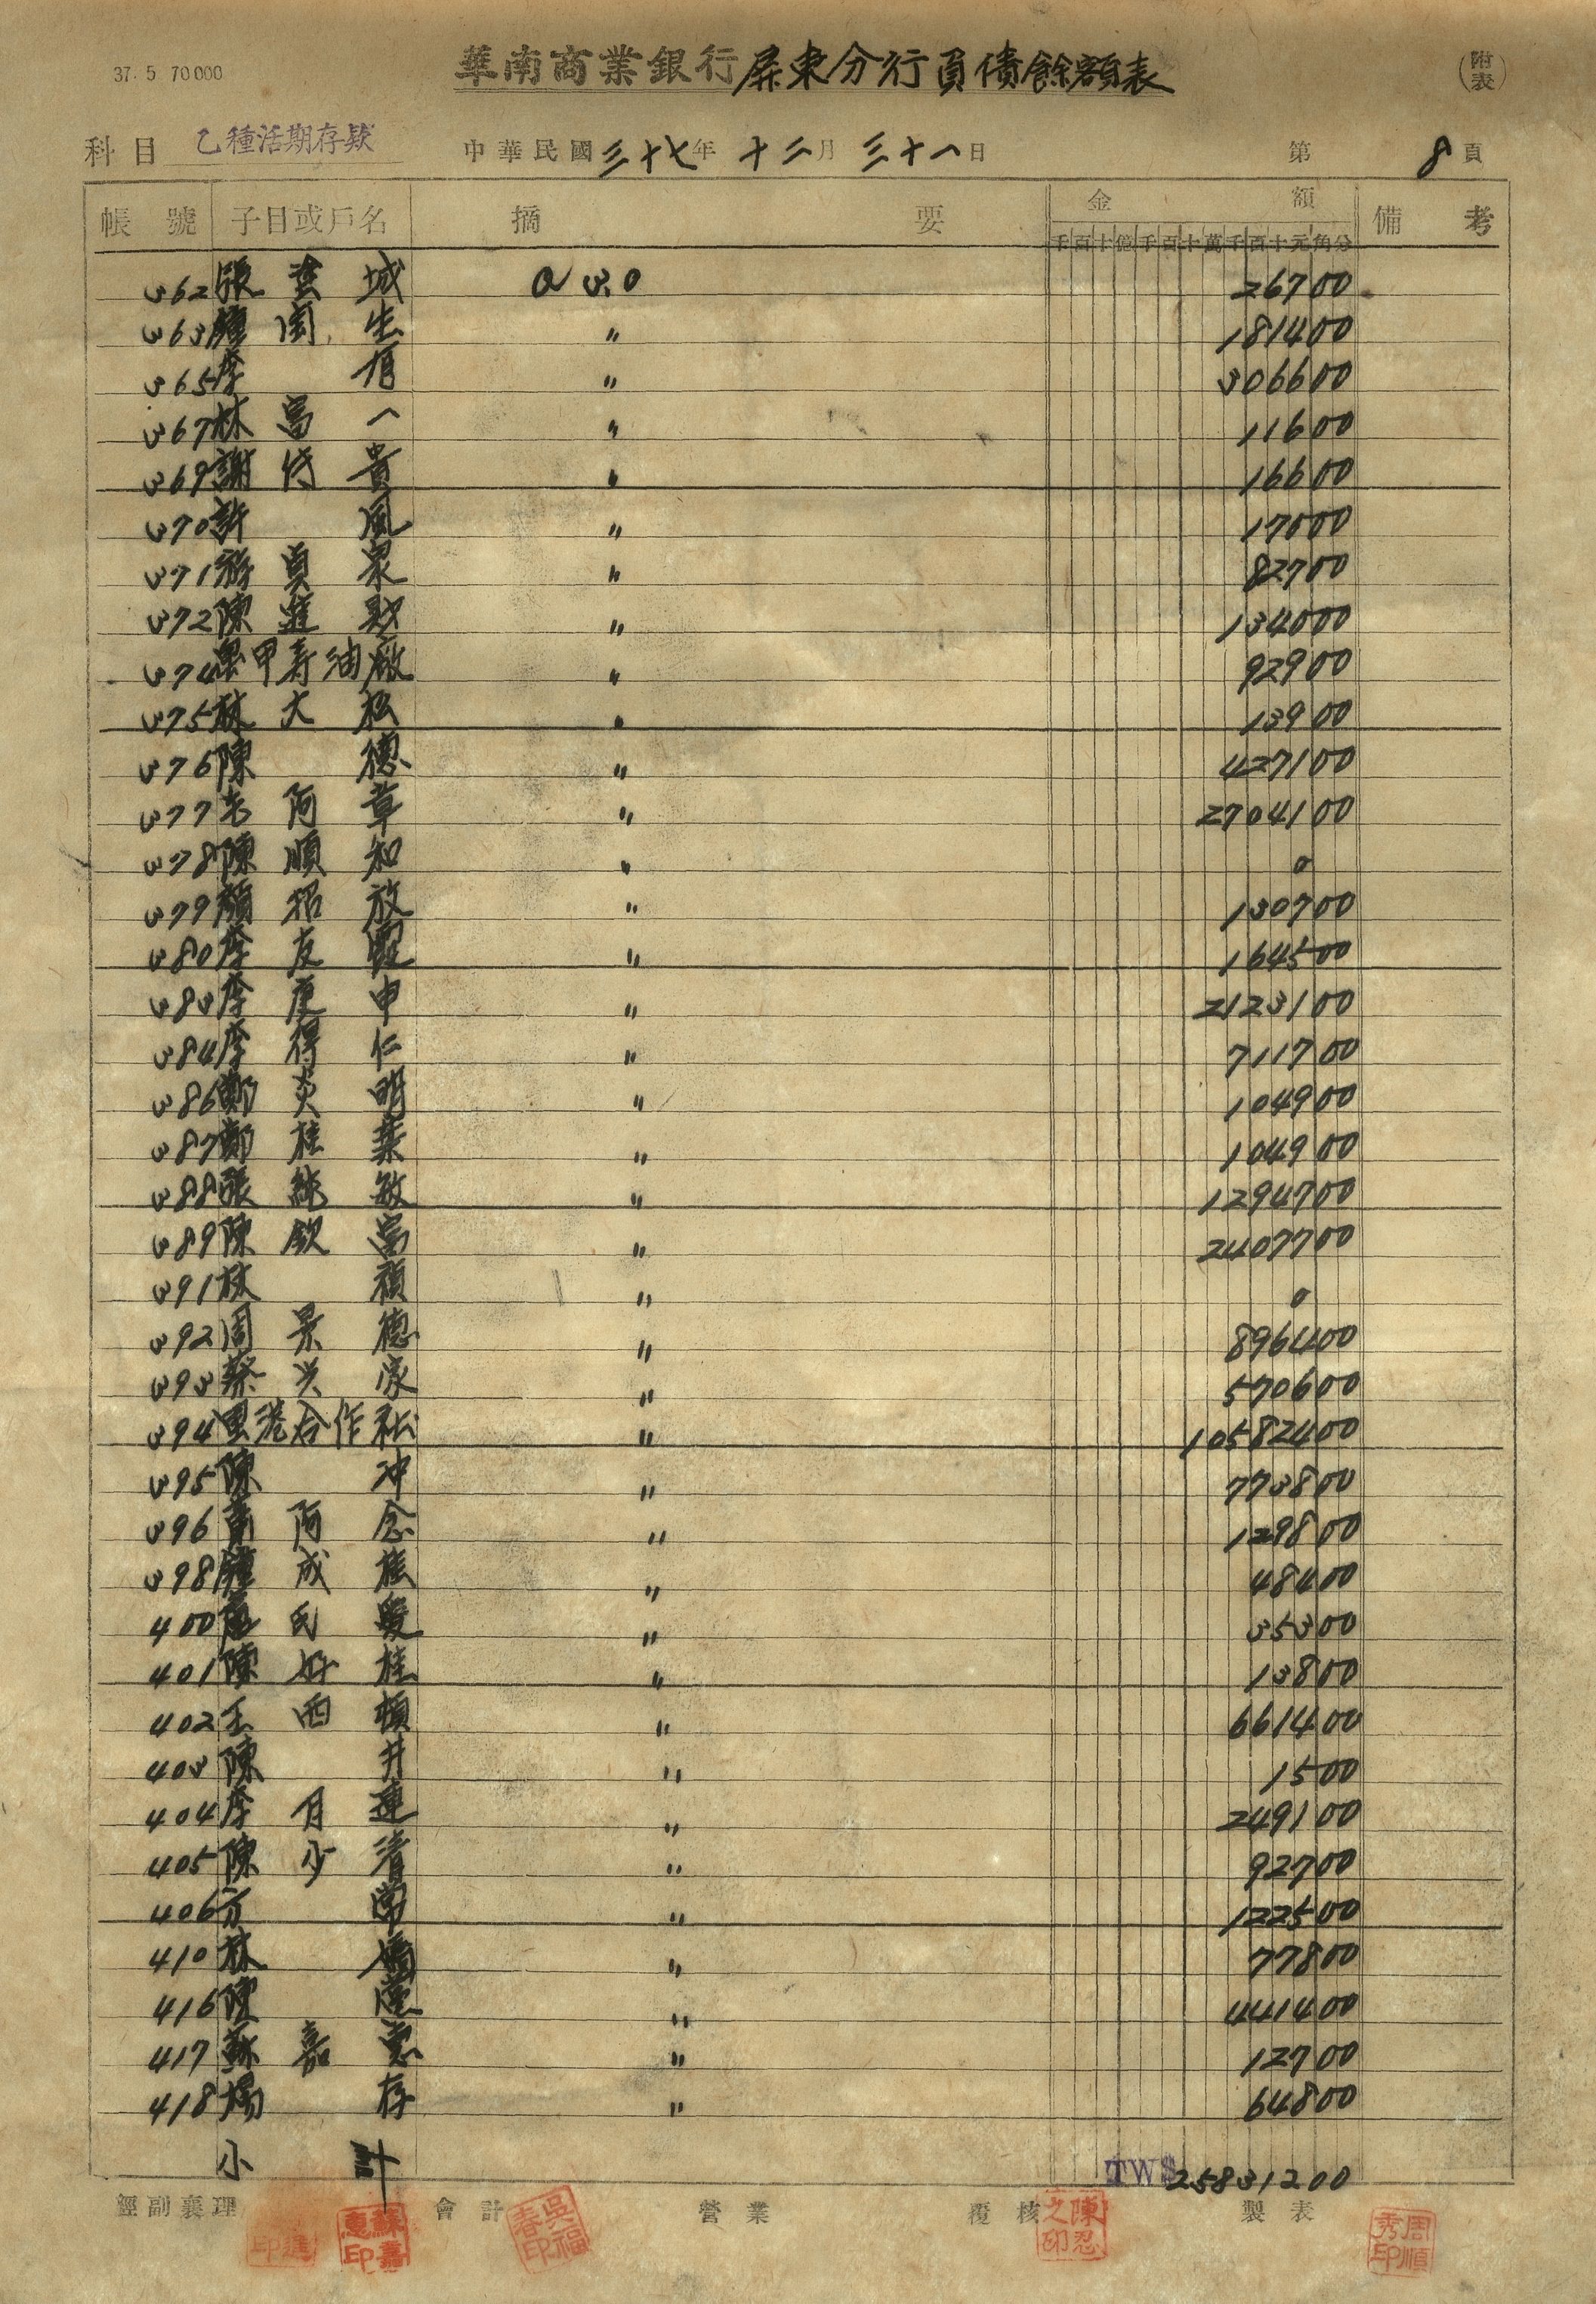 37. 5 70000
華南商業銀行屏東分行負債餘額表
(附表)
科目 乙種活期存款 中華民國三十七年十二月三十一日 第8頁
帳號 子目或戶名 摘要 金額 備考
千百十億千百十萬千百十元角分
362 張 城 @ 3.0 26700
363 鍾 生 〃 181400
365 李 〃 306600
367 林富一 〃 11600
369 謝 貴 〃 16600
370 許風 〃 17000
371 游貞泉 〃 82700
372 陳進財 〃 134000
374 里甲寿油廠 〃 92900
375 林大松 〃 13900
376 陳德 〃 427100
377 阿章 〃 2704100
378 陳順和 〃 0
379 顏招放 〃 130700
380 李友霞 〃 164500
383 李庚申 〃 2123100
384 李得仁 〃 711700
386 鄭炎明 〃 104900
387 鄭桂葉 〃 104900
388 張純敏 〃 1294700
389 陳欽富 〃 2407700
391 林 〃 0
392 周景德 〃 896400
393 蔡兴家 〃 570600
394 里港合作社 〃 10582400
395 陳冲 〃 773800
396 黃阿念 〃 129800
398 鍾成桂 〃 48400
400 氏 〃 35300
401 陳好桂 〃 13800
402 王西頓 〃 661400
403 陳井 〃 1500
404 李月連 〃 249100
405 陳少清 〃 92700
406 方常 〃 122500
410 林 〃 77800
416 陳 〃 441400
417 蘇嘉憲 〃 12700
418 楊存 〃 64800
小計 TW$ 25831200
經副襄理 會計 營業 覆核 製表
蘇嘉惠印 吳福春印 陳忍之印 周順秀印